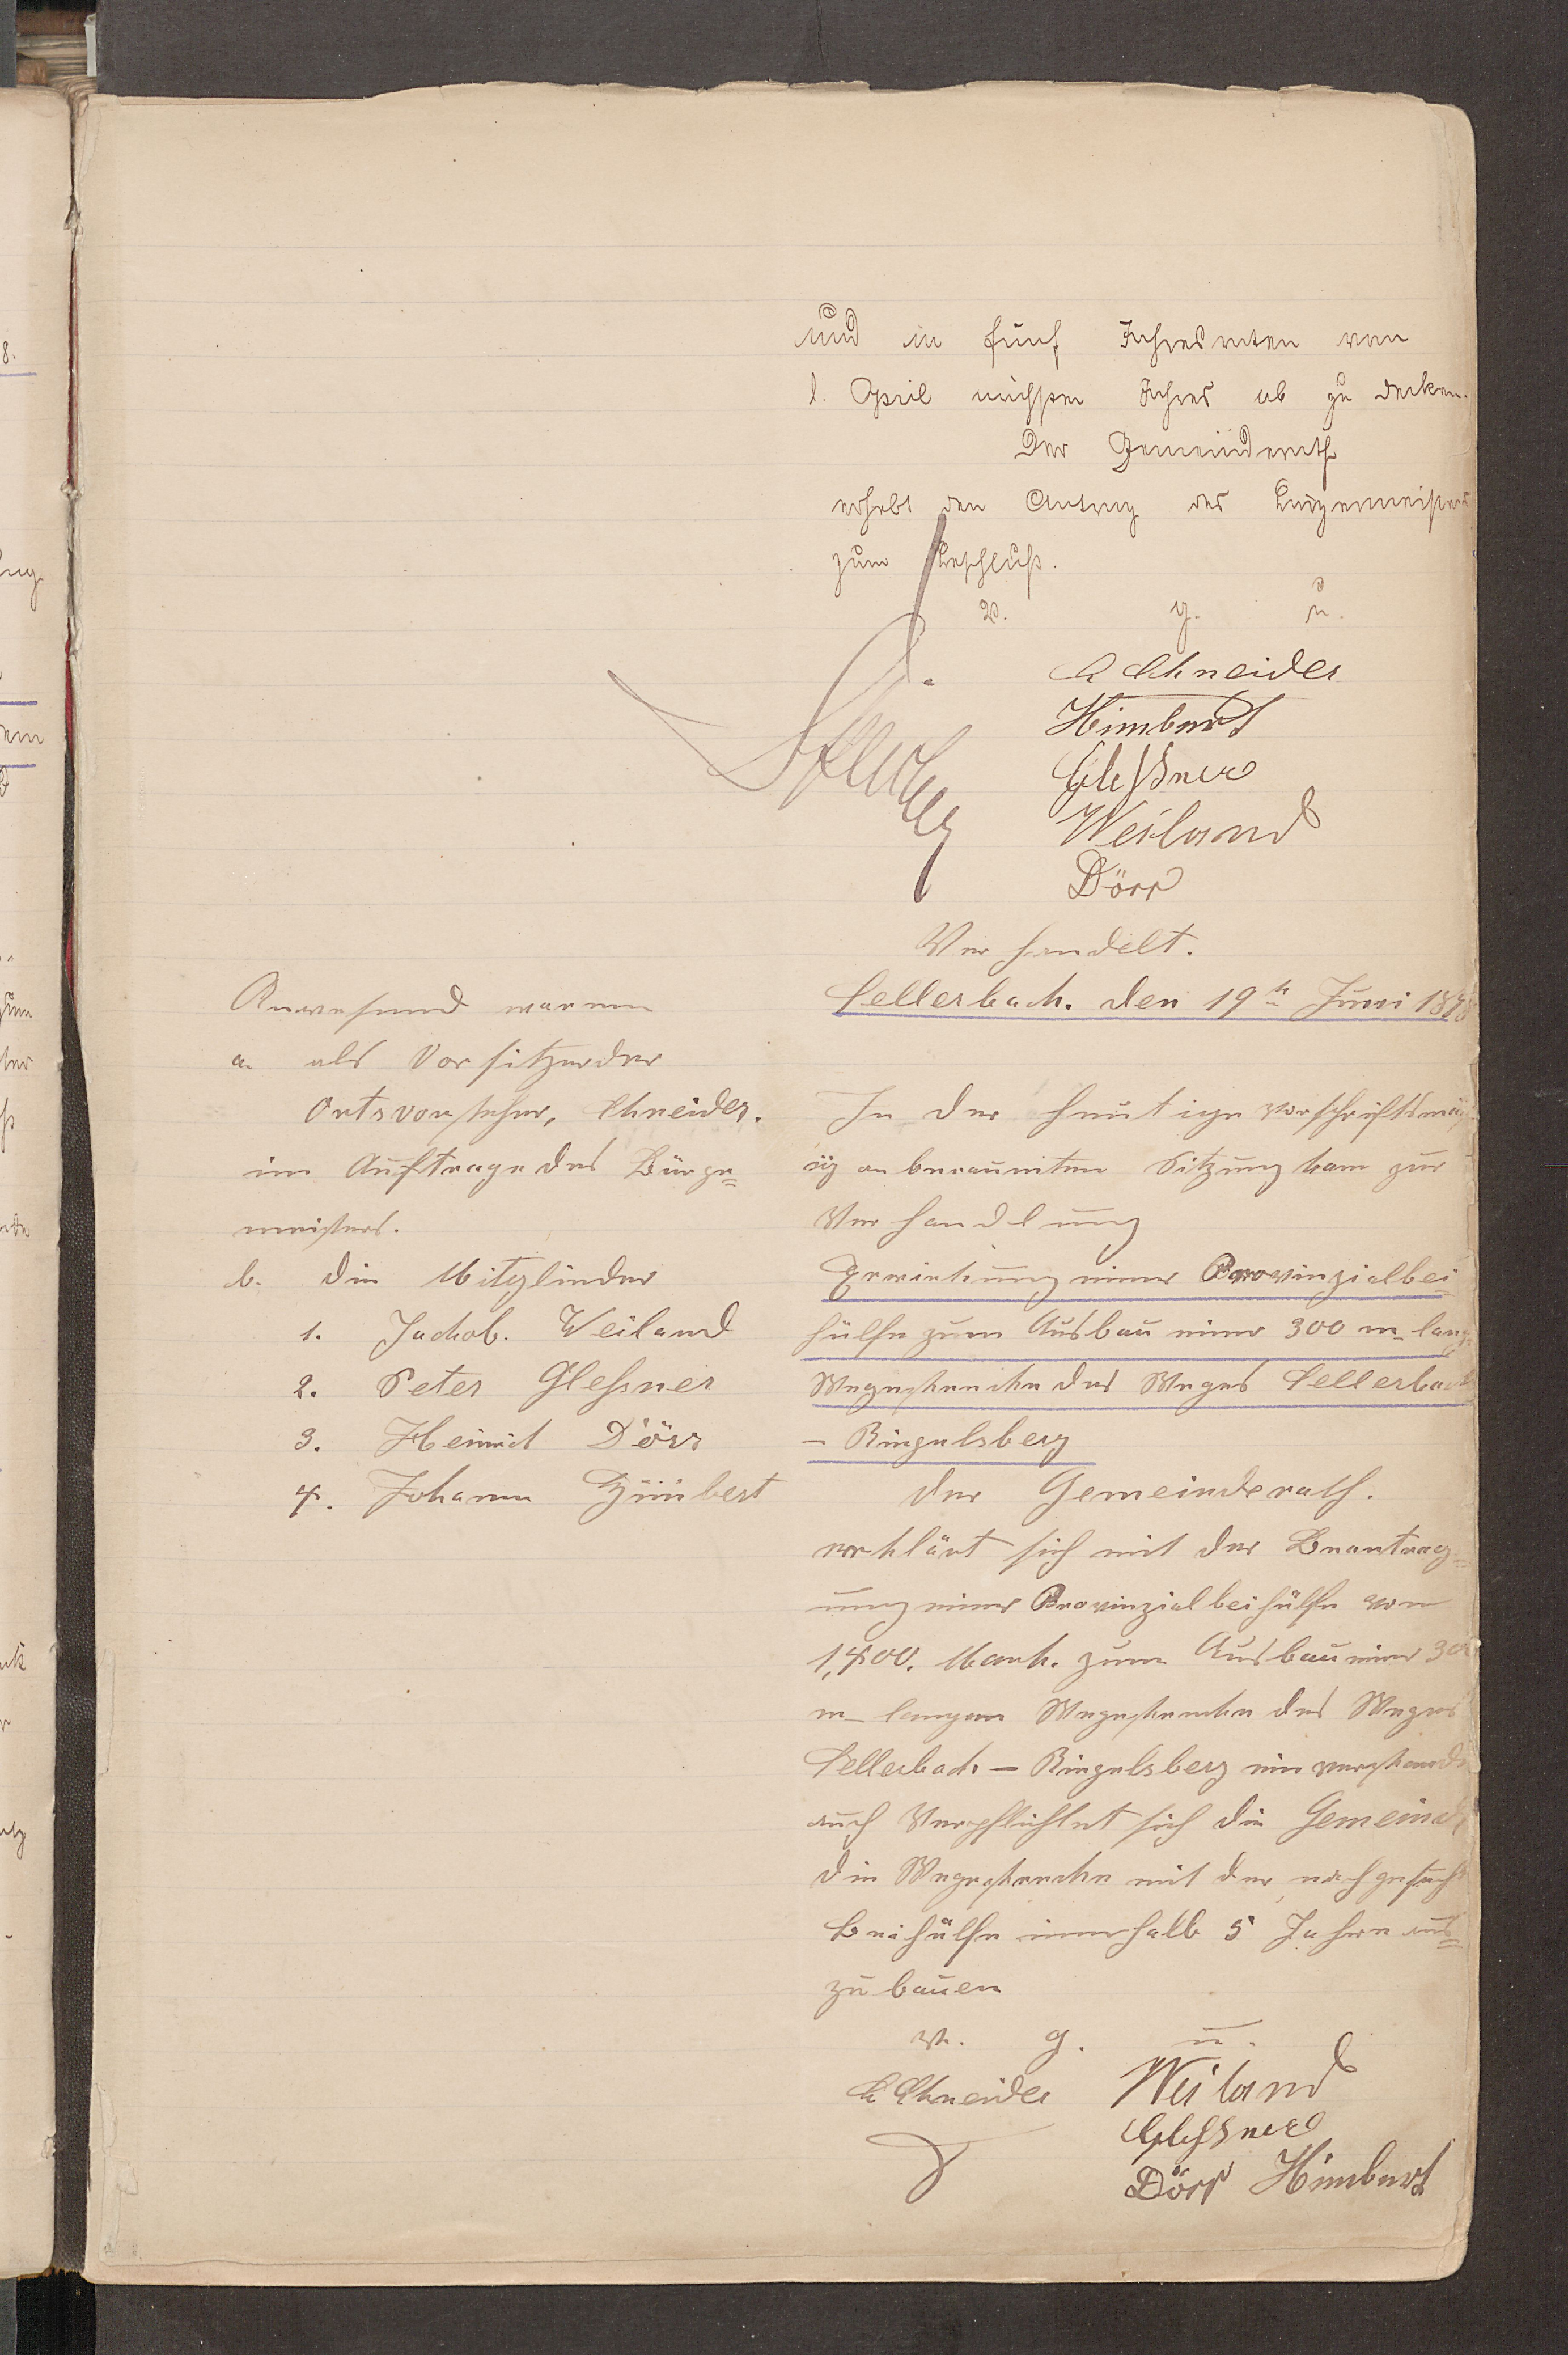 und in fünf Jahresraten vom
1. April nächsten Jahres ab zu decken.
Der Gemeinderath
erhebt den Antrag des Bürgermeisters
zum Beschluß.
v. g. u.
Schneider
Himbert
Gleßner
Weiland
Dörr
Verhandelt.
Sellerbach. den 19ten Juni 1898
Anwesend waren
a. als Vorsitzender
Ortsvorsteher, Schneider.
im Auftrage des Bürger=
meisters.
b. die Mitglieder
1. Jackob. Weiland
2. Peter Gleßner
3. Heinrich Dörr
4. Johann Himbert
In der heutigen vorschriftsmäß
ig anberaumten Sitzung kam zur
Verhandlung
Erwirkung einer Provinzialbei
hülfe zum Ausbau einer 300 m lang
Wegestrecke des Weges Sellerbach
– Riegelsberg
der Gemeinderath.
erklärt sich mit der Beantrag=
ung einer Provinzialbeihülfe von
1,400. Mark. zum Ausbau einer 300
m langen Wegestrecke des Weges
Sellerbach – Riegelsberg einverstanden
auch Verpflichtet sich die Gemeinde
die Wegestrecke mit der nachgesucht
Beihülfe innerhalb 5 Jahren aus=
zubauen
v. g. u.
Schneider Weiland
Gleßner
Dörr Himbert